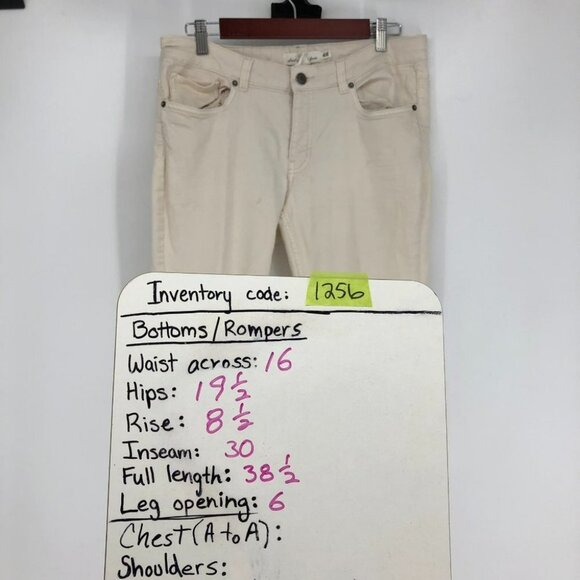 Inventory code: 1256
Bottoms/Rompers
Waist across: 16
Hips: 19 1/2
Rise: 8 1/2
Inseam: 30
Full length: 38 1/2
Leg opening: 6
Chest (A to A):
Shoulders: